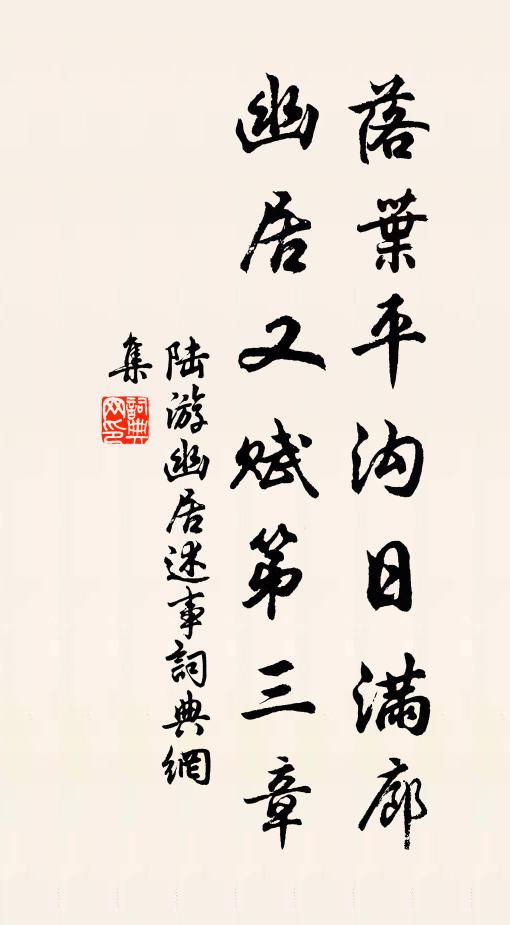 落葉平沟日满廊
幽居又赋第三章
陆游幽居述事詞典網
集
詞典网印